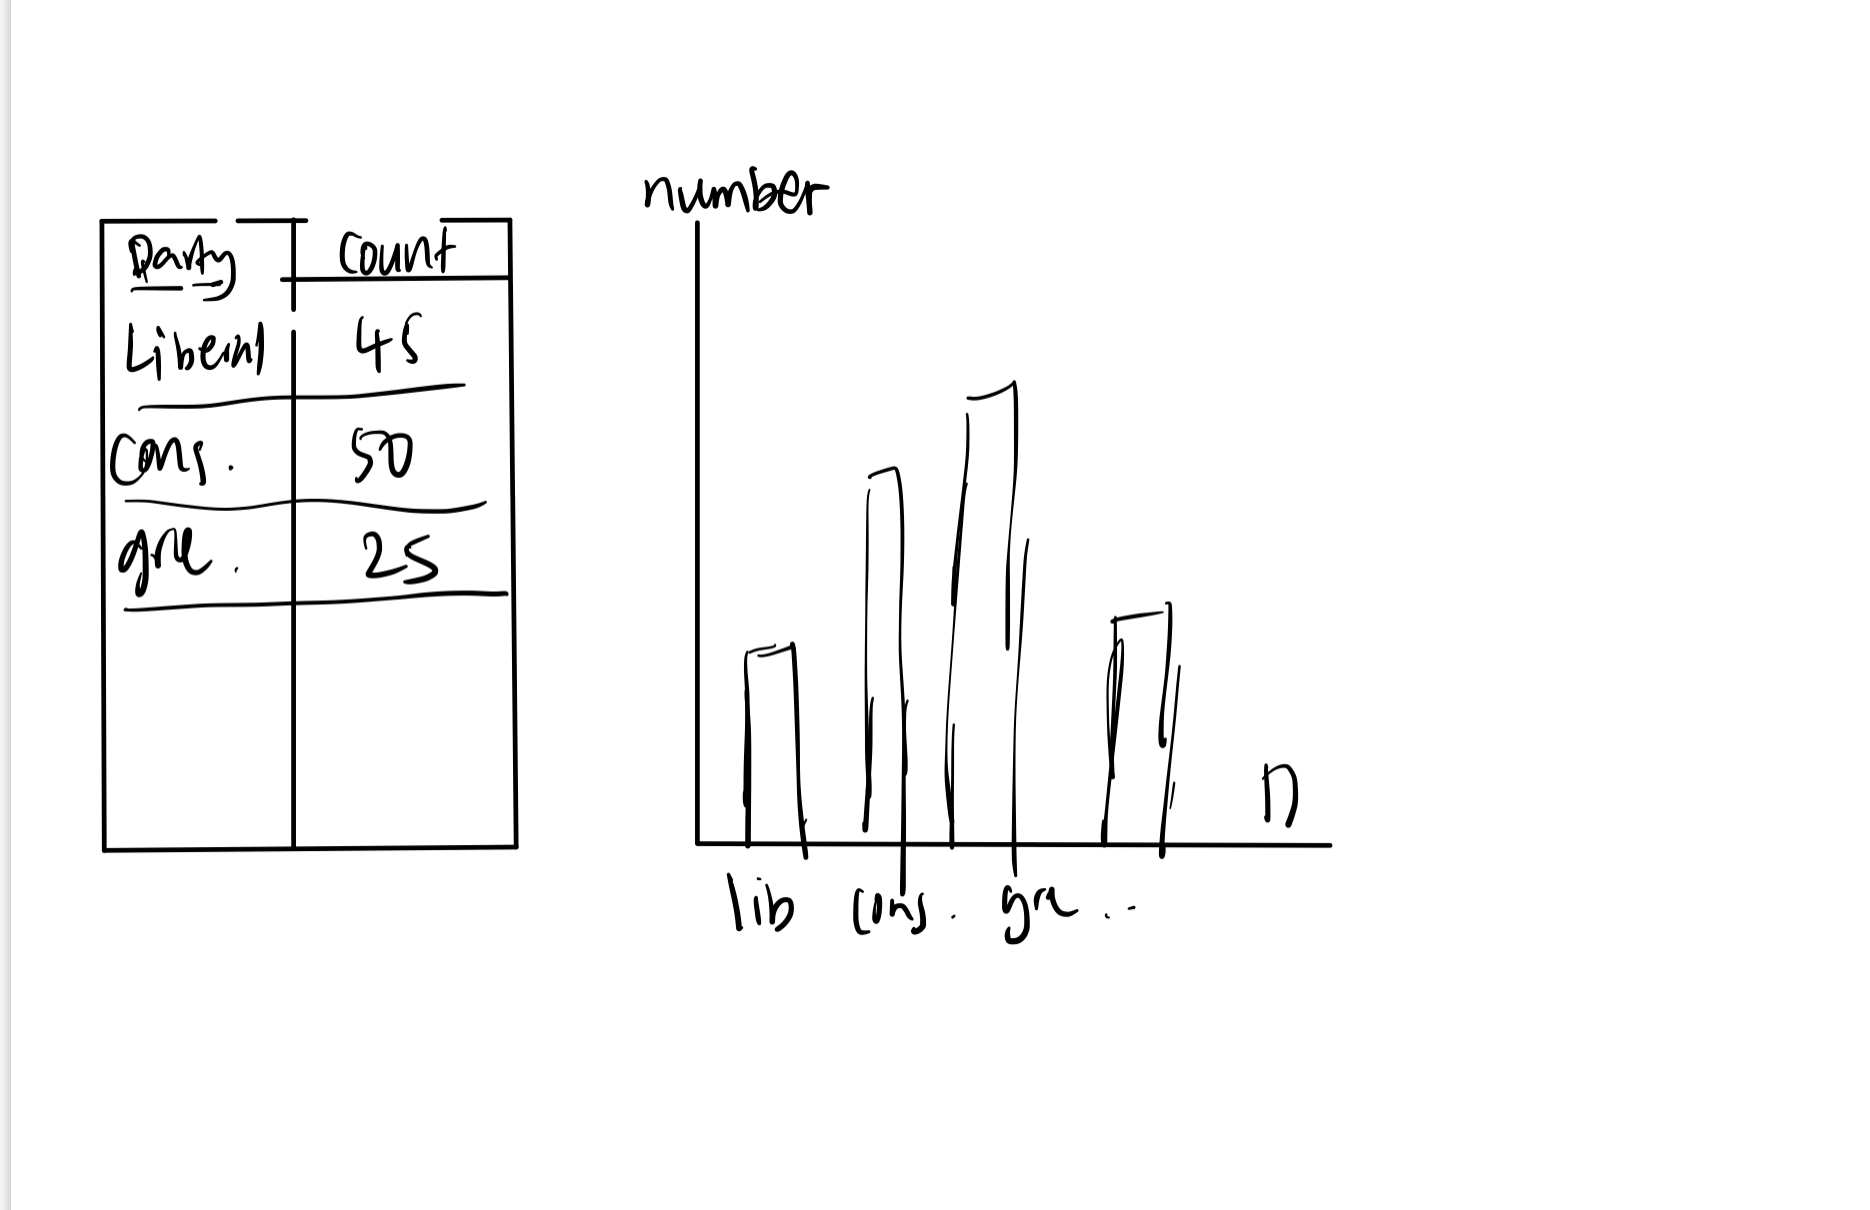 Party count
Liberal 45
Cons. 50
gre. 25
number
n
lib cons. gre ..